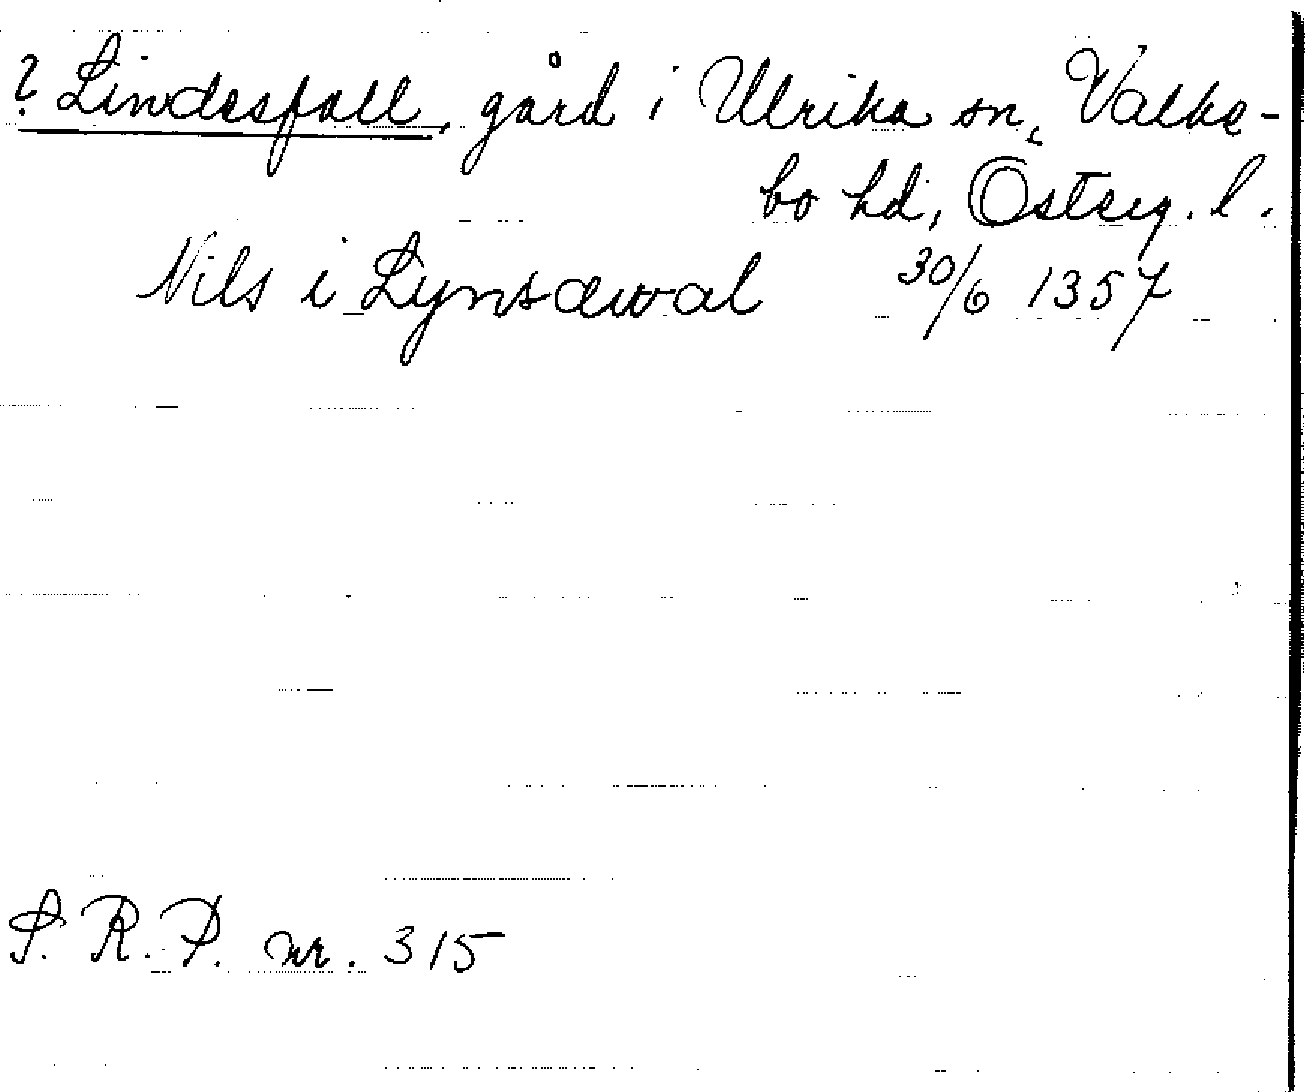 ? Lindesfall, gård i Ulrika sn, Valke-
bo hd, Österg. l.
Nils i Lynsæwal 30/6 1357
S. R. P. nr. 315